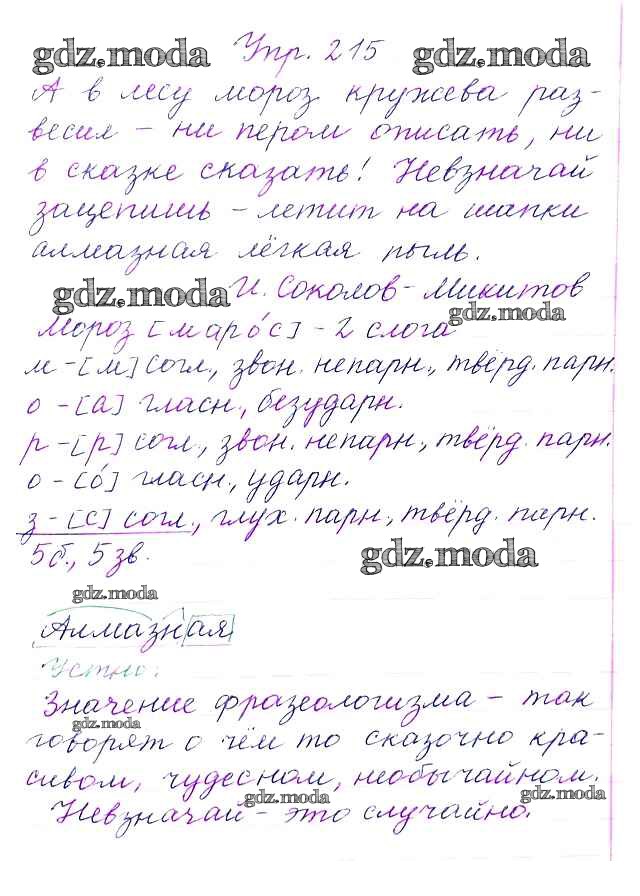 gdz.moda Упр. 215 gdz.moda
А в лесу мороз кружева раз-
весил – ни пером описать, ни
в сказке сказать! Невзначай
зацепишь – летит на шапки
алмазная лёгкая пыль.
gdz.moda И. Соколов-Микитов
gdz.moda
Мороз [маро́с] – 2 слога
м – [м] согл., звон. непарн., твёрд. парн.
о – [а] гласн., безударн.
р – [р] согл., звон. непарн., твёрд. парн.
о – [о́] гласн., ударн.
з – [с] согл., глух. парн., твёрд. парн.
5 б., 5 зв.
gdz.moda
gdz.moda
Алмазная
Устно:
Значение фразеологизма – так
gdz.moda
говорят о чём то сказочно кра-
сивом, чудесном, необычайном.
gdz.moda gdz.moda
Невзначай – это случайно.